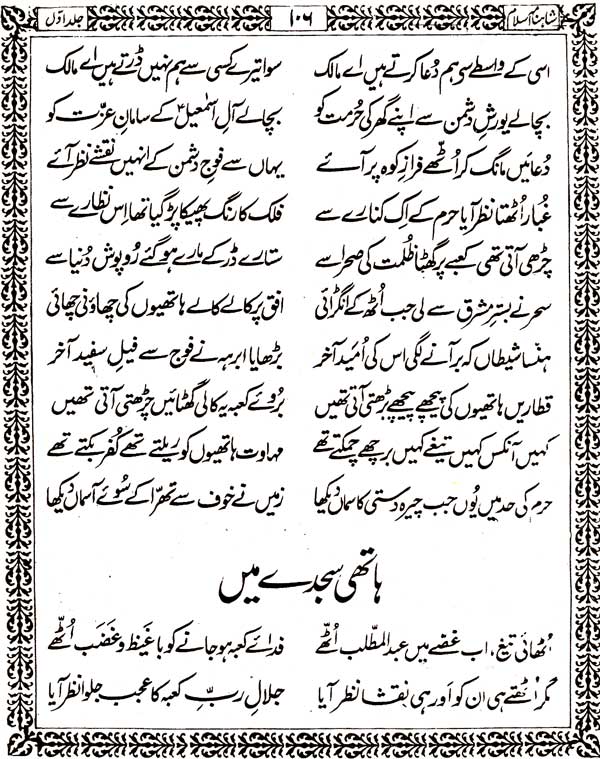 شاہنامۂ اسلام ۱۰۶ جلد اوّل
اسی کے واسطے سی ہم دُعا کرتے ہیں اے مالک سوا تیرے کسی سے ہم نہیں ڈرتے ہیں اے مالک
بچالے یورشِ دشمن سے اپنے گھر کی حُرمت کو بچالے آلِ اسمٰعیلؑ کے سامانِ عزّت کو
دُعائیں مانگ کر اُٹھے فرازِ کوہ پر آئے یہاں سے فوجِ دشمن کے انہیں نقشے نظر آئے
غُبار اُٹھتا نظر آیا حرم کے اِک کنارے سے فلک کا رنگ پھیکا پڑ گیا تھا اِس نظارے سے
چڑھی آتی تھی کعبے پر گھٹا ظُلمت کی صحرا سے ستارے ڈر کے مارے ہو گئے رُوپوش دُنیا سے
سحر نے بسترِ مشرق سے لی جب اُٹھ کے انگڑائی افق پر کالے کالے ہاتھیوں کی چھاؤنی چھائی
ہنسا شیطاں کہ بر آنے لگی اس کی اُمید آخر بڑھایا ابرہہ نے فوج سے فیلِ سفید آخر
قطاریں ہاتھیوں کی پیچھے پیچھے بڑھتی آتی تھیں بُروئے کعبہ یہ کالی گھٹائیں چڑھتی آتی تھیں
کہیں آنکس کہیں تیغے کہیں برچھے چمکتے تھے مہاوت ہاتھیوں کو ریلتے تھے کُفر بکتے تھے
حرم کی حد میں یُوں جب چیرہ دستی کا سماں دیکھا زمیں نے خوف سے تھرّا کے سُوئے آسماں دیکھا
ہاتھی سجدے میں
اُٹھائی تیغ، اب غصّے میں عبدالمطّلب اُٹھّے فدائے کعبہ ہو جانے کو با غیظ و غضب اُٹھّے
مگر اُٹھتے ہی ان کو اَور ہی نقشا نظر آیا جلالِ ربِّ کعبہ کا عجب جلوا نظر آیا